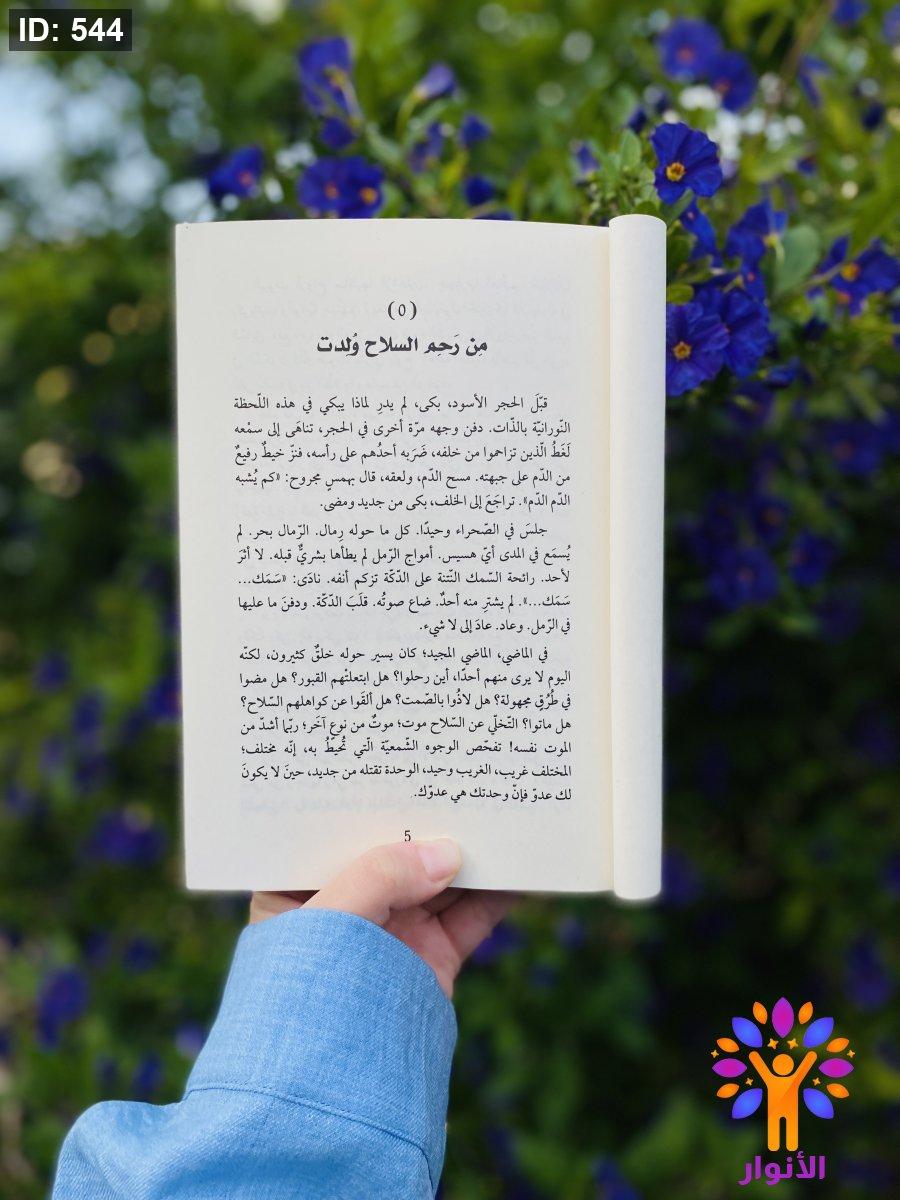 ID: 544
(٥)
مِن رَحِمِ السلاح وُلِدت
قبّلَ الحجر الأسود، بكى، لم يدرِ لماذا يبكي في هذه اللّحظة
النّورانيّة بالذّات. دفن وجهه مرّة أخرى في الحجر، تناهَى إلى سمْعه
لَغَطُ الّذين تزاحموا من خلفه، ضَرَبه أحدُهم على رأسه، فنزّ خيطٌ رفيعٌ
من الدّم على جبهته. مسح الدّم، ولعقه، قال بهمسٍ مجروح: «كم يُشبه
الدّم الدّم». تراجَعَ إلى الخلف، بكى من جديد ومضى.
جلسَ في الصّحراء وحيدًا. كل ما حوله رِمال. الرّمال بحر. لم
يُسمَع في المدى أيّ هسيس. أمواج الرّمل لم يطأها بشريٌّ قبله. لا أثرَ
لأحد. رائحة السّمك النّتنة على الدّكّة تزكم أنفه. نادَى: «سَمَك...
سَمَك...». لم يشترِ منه أحدٌ. ضاع صوتُه. قلَبَ الدّكّة. ودفنَ ما عليها
في الرّمل. وعاد. عادَ إلى لا شيء.
في الماضي، الماضي المجيد؛ كان يسير حوله خلقٌ كثيرون، لكنّه
اليوم لا يرى منهم أحدًا، أين رحلوا؟ هل ابتعلتْهم القبور؟ هل مضوا
في طُرُقٍ مجهولة؟ هل لاذُوا بالصّمت؟ هل ألقَوا عن كواهلهم السّلاح؟
هل ماتوا؟ التّخلّي عن السّلاح موت؛ موتٌ من نوعٍ آخَر؛ ربّما أشدّ من
الموت نفسه! تفحّص الوجوه الشّمعيّة الّتي تُحيطُ به، إنّه مختلف؛
المختلف غريب، الغريب وحيد، الوحدة تقتله من جديد، حينَ لا يكونَ
لك عدوّ فإنّ وحدتك هي عدوّك.
5
الأنوار